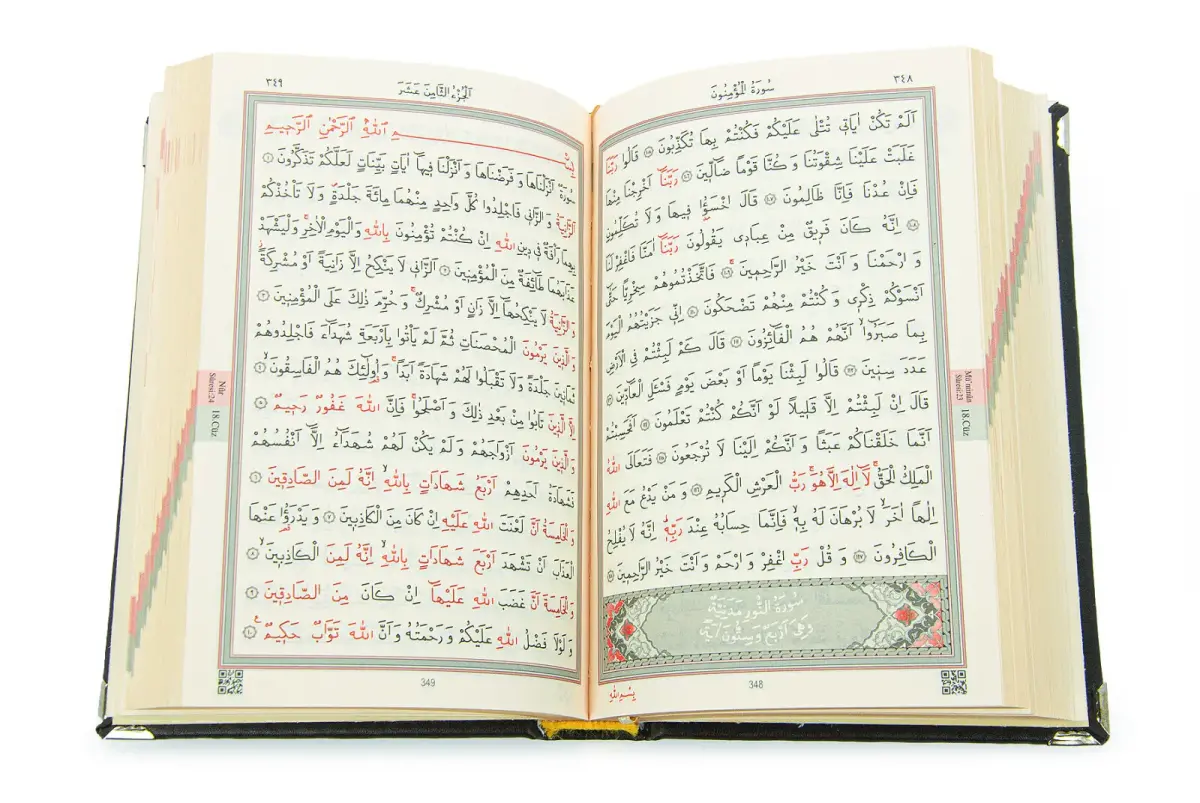 سُورَةُ الْمُؤْمِنُونَ ٣٤٨
اَلَمْ تَكُنْ اٰيَاتٖى تُتْلٰى عَلَيْكُمْ فَكُنْتُمْ بِهَا تُكَذِّبُونَ ﴿١٠٥﴾ قَالُوا رَبَّنَا
غَلَبَتْ عَلَيْنَا شِقْوَتُنَا وَكُنَّا قَوْمًا ضَٓالّٖينَ ﴿١٠٦﴾ رَبَّنَٓا اَخْرِجْنَا مِنْهَا
فَاِنْ عُدْنَا فَاِنَّا ظَالِمُونَ ﴿١٠٧﴾ قَالَ اخْسَؤُ۫ا فٖيهَا وَلَا تُكَلِّمُونِ
﴿١٠٨﴾ اِنَّهُ كَانَ فَرٖيقٌ مِنْ عِبَادٖى يَقُولُونَ رَبَّنَٓا اٰمَنَّا فَاغْفِرْ لَنَا
وَارْحَمْنَا وَاَنْتَ خَيْرُ الرَّاحِمٖينَ ﴿١٠٩﴾ فَاتَّخَذْتُمُوهُمْ سِخْرِيًّا حَتّٰٓى
اَنْسَوْكُمْ ذِكْرٖى وَكُنْتُمْ مِنْهُمْ تَضْحَكُونَ ﴿١١٠﴾ اِنّٖى جَزَيْتُهُمُ الْيَوْمَ
بِمَا صَبَرُٓوا اَنَّهُمْ هُمُ الْفَٓائِزُونَ ﴿١١١﴾ قَالَ كَمْ لَبِثْتُمْ فِى الْاَرْضِ
عَدَدَ سِنٖينَ ﴿١١٢﴾ قَالُوا لَبِثْنَا يَوْمًا اَوْ بَعْضَ يَوْمٍ فَسْـَٔلِ الْعَٓادّٖينَ ﴿١١٣﴾
قَالَ اِنْ لَبِثْتُمْ اِلَّا قَلٖيلًا لَوْ اَنَّكُمْ كُنْتُمْ تَعْلَمُونَ ﴿١١٤﴾ اَفَحَسِبْتُمْ
اَنَّمَا خَلَقْنَاكُمْ عَبَثًا وَاَنَّكُمْ اِلَيْنَا لَا تُرْجَعُونَ ﴿١١٥﴾ فَتَعَالَى اللّٰهُ
الْمَلِكُ الْحَقُّ لَٓا اِلٰهَ اِلَّا هُوَ رَبُّ الْعَرْشِ الْكَرٖيمِ ﴿١١٦﴾ وَمَنْ يَدْعُ مَعَ اللّٰهِ
اِلٰهًا اٰخَرَ لَا بُرْهَانَ لَهُ بِهٖ فَاِنَّمَا حِسَابُهُ عِنْدَ رَبِّهٖ اِنَّهُ لَا يُفْلِحُ
الْكَافِرُونَ ﴿١١٧﴾ وَقُلْ رَبِّ اغْفِرْ وَارْحَمْ وَاَنْتَ خَيْرُ الرَّاحِمٖينَ ﴿١١٨﴾
سُورَةُ النُّورِ مَدَنِيَّةٌ
وَهِىَ اَرْبَعٌ وَسِتُّونَ اٰيَةً
بِسْمِ اللّٰهِ
348
Mü'minûn
Sûresi:23
18.Cüz
اَلْجُزْءُ الثَّامِنَ عَشَرَ ٣٤٩
بِسْمِ اللّٰهِ الرَّحْمٰنِ الرَّحٖيمِ
سُورَةٌ اَنْزَلْنَاهَا وَفَرَضْنَاهَا وَاَنْزَلْنَا فٖيهَٓا اٰيَاتٍ بَيِّنَاتٍ لَعَلَّكُمْ تَذَكَّرُونَ ﴿١﴾
اَلزَّانِيَةُ وَالزَّانٖى فَاجْلِدُوا كُلَّ وَاحِدٍ مِنْهُمَا مِائَةَ جَلْدَةٍ وَلَا تَأْخُذْكُمْ
بِهِمَا رَأْفَةٌ فٖى دٖينِ اللّٰهِ اِنْ كُنْتُمْ تُؤْمِنُونَ بِاللّٰهِ وَالْيَوْمِ الْاٰخِرِ وَلْيَشْهَدْ
عَذَابَهُمَا طَٓائِفَةٌ مِنَ الْمُؤْمِنٖينَ ﴿٢﴾ اَلزَّانٖى لَا يَنْكِحُ اِلَّا زَانِيَةً اَوْ مُشْرِكَةً
وَالزَّانِيَةُ لَا يَنْكِحُهَٓا اِلَّا زَانٍ اَوْ مُشْرِكٌ وَحُرِّمَ ذٰلِكَ عَلَى الْمُؤْمِنٖينَ ﴿٣﴾
وَالَّذٖينَ يَرْمُونَ الْمُحْصَنَاتِ ثُمَّ لَمْ يَأْتُوا بِاَرْبَعَةِ شُهَدَٓاءَ فَاجْلِدُوهُمْ
ثَمَانٖينَ جَلْدَةً وَلَا تَقْبَلُوا لَهُمْ شَهَادَةً اَبَدًا وَاُو۬لٰٓئِكَ هُمُ الْفَاسِقُونَ ﴿٤﴾
اِلَّا الَّذٖينَ تَابُوا مِنْ بَعْدِ ذٰلِكَ وَاَصْلَحُوا فَاِنَّ اللّٰهَ غَفُورٌ رَحٖيمٌ ﴿٥﴾
وَالَّذٖينَ يَرْمُونَ اَزْوَاجَهُمْ وَلَمْ يَكُنْ لَهُمْ شُهَدَٓاءُ اِلَّٓا اَنْفُسُهُمْ
فَشَهَادَةُ اَحَدِهِمْ اَرْبَعُ شَهَادَاتٍ بِاللّٰهِ اِنَّهُ لَمِنَ الصَّادِقٖينَ ﴿٦﴾
وَالْخَامِسَةُ اَنَّ لَعْنَتَ اللّٰهِ عَلَيْهِ اِنْ كَانَ مِنَ الْكَاذِبٖينَ ﴿٧﴾ وَيَدْرَؤُ۬ا عَنْهَا
الْعَذَابَ اَنْ تَشْهَدَ اَرْبَعَ شَهَادَاتٍ بِاللّٰهِ اِنَّهُ لَمِنَ الْكَاذِبٖينَ ﴿٨﴾
وَالْخَامِسَةَ اَنَّ غَضَبَ اللّٰهِ عَلَيْهَٓا اِنْ كَانَ مِنَ الصَّادِقٖينَ ﴿٩﴾
وَلَوْلَا فَضْلُ اللّٰهِ عَلَيْكُمْ وَرَحْمَتُهُ وَاَنَّ اللّٰهَ تَوَّابٌ حَكٖيمٌ ﴿١٠﴾
349
Nûr
Sûresi:24
18.Cüz